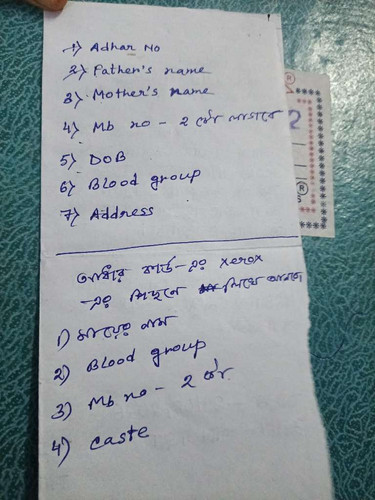 1) Adhar No
2) Father's name
3) Mother's name
4) Mb no - 2 টো লাগবে
5) DoB
6) Blood group
7) Address
আধার কার্ড-এর xerox
-এর পিছনে লিখে আনবে
1) মায়ের নাম
2) Blood group
3) Mb no - 2 টো
4) Caste
2
R
R